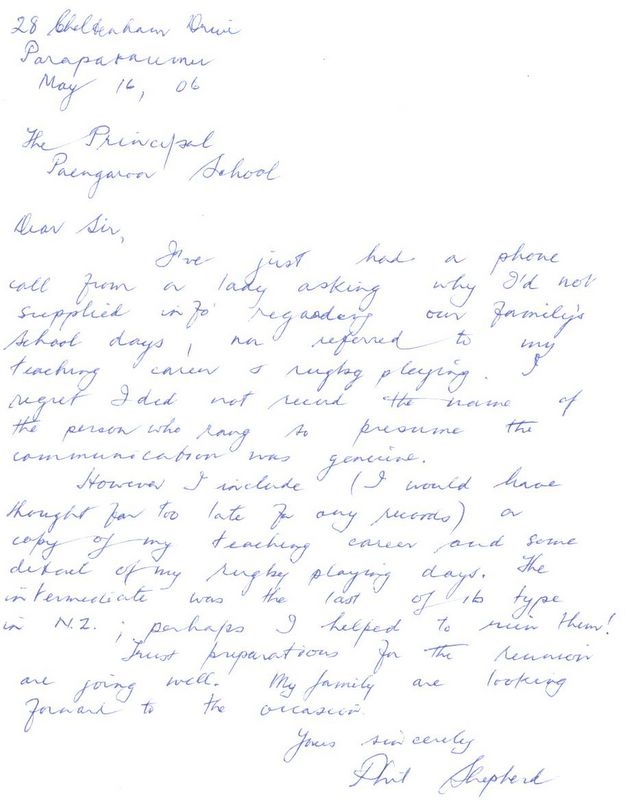 28 Cheltenham Drive
Paraparaumu
May 16, 06
The Principal
Paengaroa School
Dear Sir,
I've just had a phone
call from a lady asking why I'd not
supplied info' regarding our family's
school days, nor referred to my
teaching career & rugby playing. I
regret I did not record the name of
the person who rang so presume the
communication was genuine.
However I include (I would have
thought far too late for any records) a
copy of my teaching career and some
detail of my rugby playing days. The
intermediate was the last of its type
in N.Z.; perhaps I helped to ruin them!
Trust preparations for the reunion
are going well. My family are looking
forward to the occasion.
Yours sincerely
Phil Shepherd